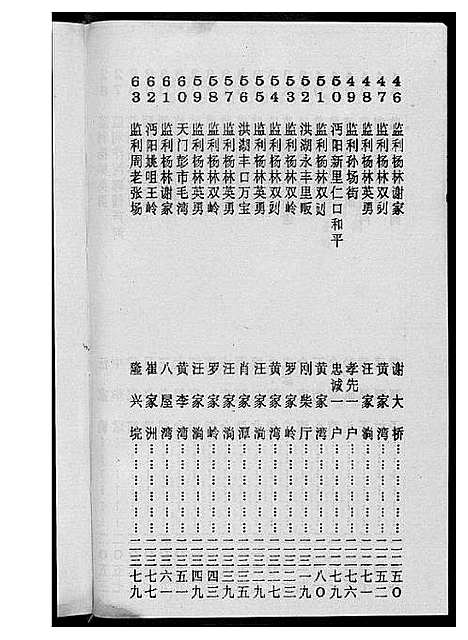 46 监利杨林谢家 谢大桥……一一五0
47 监利杨林双剅 黄家湾……一一五二
48 监利杨林英勇 汪家淌……一一七一
49 监利孙场街 孝先一户……一一七六
50 沔阳新里仁口和平 忠诚一户……一一七九
51 监利杨林双剅 黄家湾……一一八0
52 洪湖永丰里畈 刚柴厅……一三一九
53 监利杨林双岭 罗家岭……一三二七
54 监利杨林双剅 黄家湾……一三二七
55 监利杨林英勇 汪家淌……一三二九
56 洪湖丰口万宝 肖家潭……一三三五
57 监利杨林英勇 汪家淌……一三三九
58 监利杨林双岭 罗家岭……一三四三
59 监利杨林英勇 汪家淌……一三四九
60 天门彭市毛湾 黄李湾……一三五一
61 监利杨林谢家 八屋湾……一三六一
62 沔阳姚咀王岭 崔家洲……一三七七
63 监利周老张场 隆兴垸……一三七九